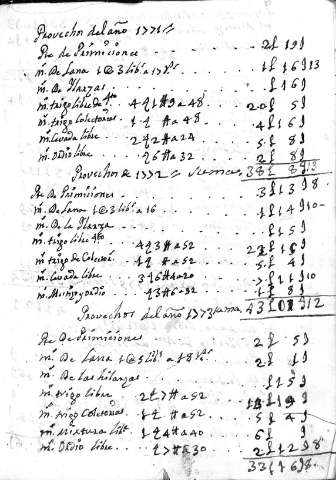 Provechos del año 1771 =
Pr. de Primicione . . . 2 £ 19 §
m. De Lana 1 @ 3 lib. a 17 . . . 1 £ 16 § 13
m. De Ylazas . . . £ 16 §
m. trigo libre de . . . 4 q 1 # 9 a 48 . . . 20 £ 5 §
m. trigo Colectores . . . 1 q # a 48 . . . 4 £ 16 §
m. Cevada libre . . . 2 q 2 # a 24 . . . 5 £ 8 §
m. Ordio libre . . . q 6 # a 32 . . . 2 £ 8 §
Provechos de 1772 = sumas 38 £ 8 §
Pr. De Primiciones . . . 3 £ 13 § 8
m. De Lana 1 @ 3 lib. a 16 . . . 1 £ 14 § 10
m. De la Ylanza . . . £ 15 §
m. trigo libre . . . 4 q 3 # a 52
m. trigo de Colecto . . . 1 q # a 52 . . . 5 £ 4 §
m. Cevada libre . . . 3 q 6 # a 20 . . . 7 £ 11 § 10
m. y ordio . . . q 3 # 6 - 32 . . . 1 £ 8 §
Provechos del año 1773 suma 43 £ 07 § 12
Pr. De Primiciones . . . 2 £ 5 §
m. De Lana 1 @ 5 lib. a 18 . . . 2 £ 1 §
m. De las hilanzas . . . £ 15 §
m. trigo libre . . . 2 q 7 # a 52
m. trigo Colectores . . . 1 q # a 52 . . . 5 £ 4 §
m. Mixtura lib. 1 q 4 # a 40 . . . 6 £ §
m. Ordio libre . . . q 7 # a 30 . . . 2 £ 12 § 8
33 £ 16 § 8